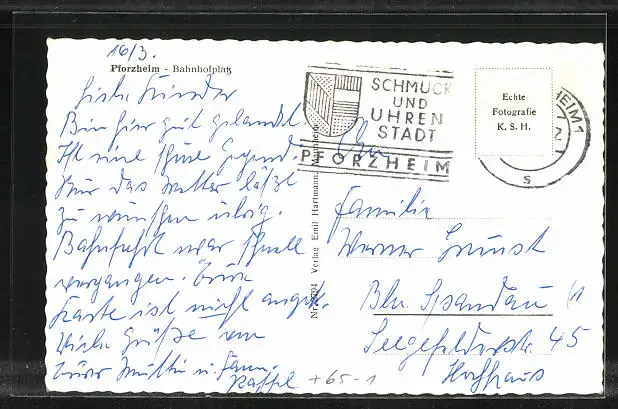 16/3.
Pforzheim - Bahnhofplatz
Liebe Kinder
Bin hier gut gelandet
Ist eine schöne Gegend.
Nur das Wetter läßt
zu wünschen übrig.
Bahnfahrt war schnell
vergangen. Eure
Karte ist nicht angek.
Viele Grüße von
Eurer Mutti u. Fam.
+65-1
Verlag Emil Hartmann, Mannheim
SCHMUCK
UND
UHREN
STADT
PFORZHEIM
Echte
Fotografie
K. S. H.
HEIM 1
s
An
Familie
Werner
Bln. Spandau
Seegefelderstr. 45
Hochhaus